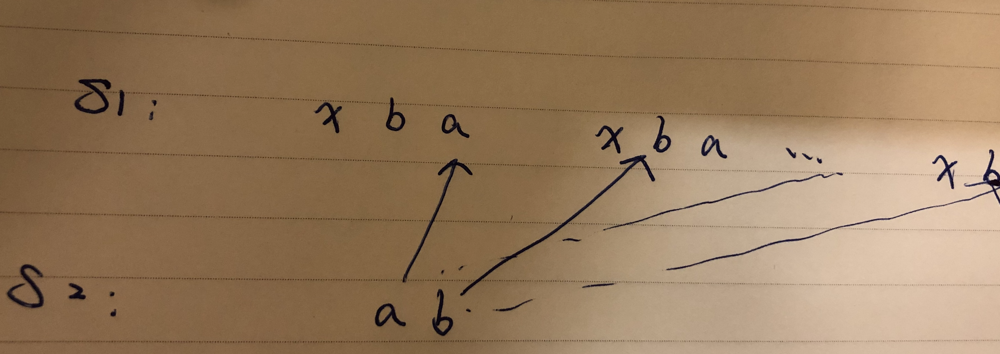 S1: x b a x b a ... x b
S2: a b